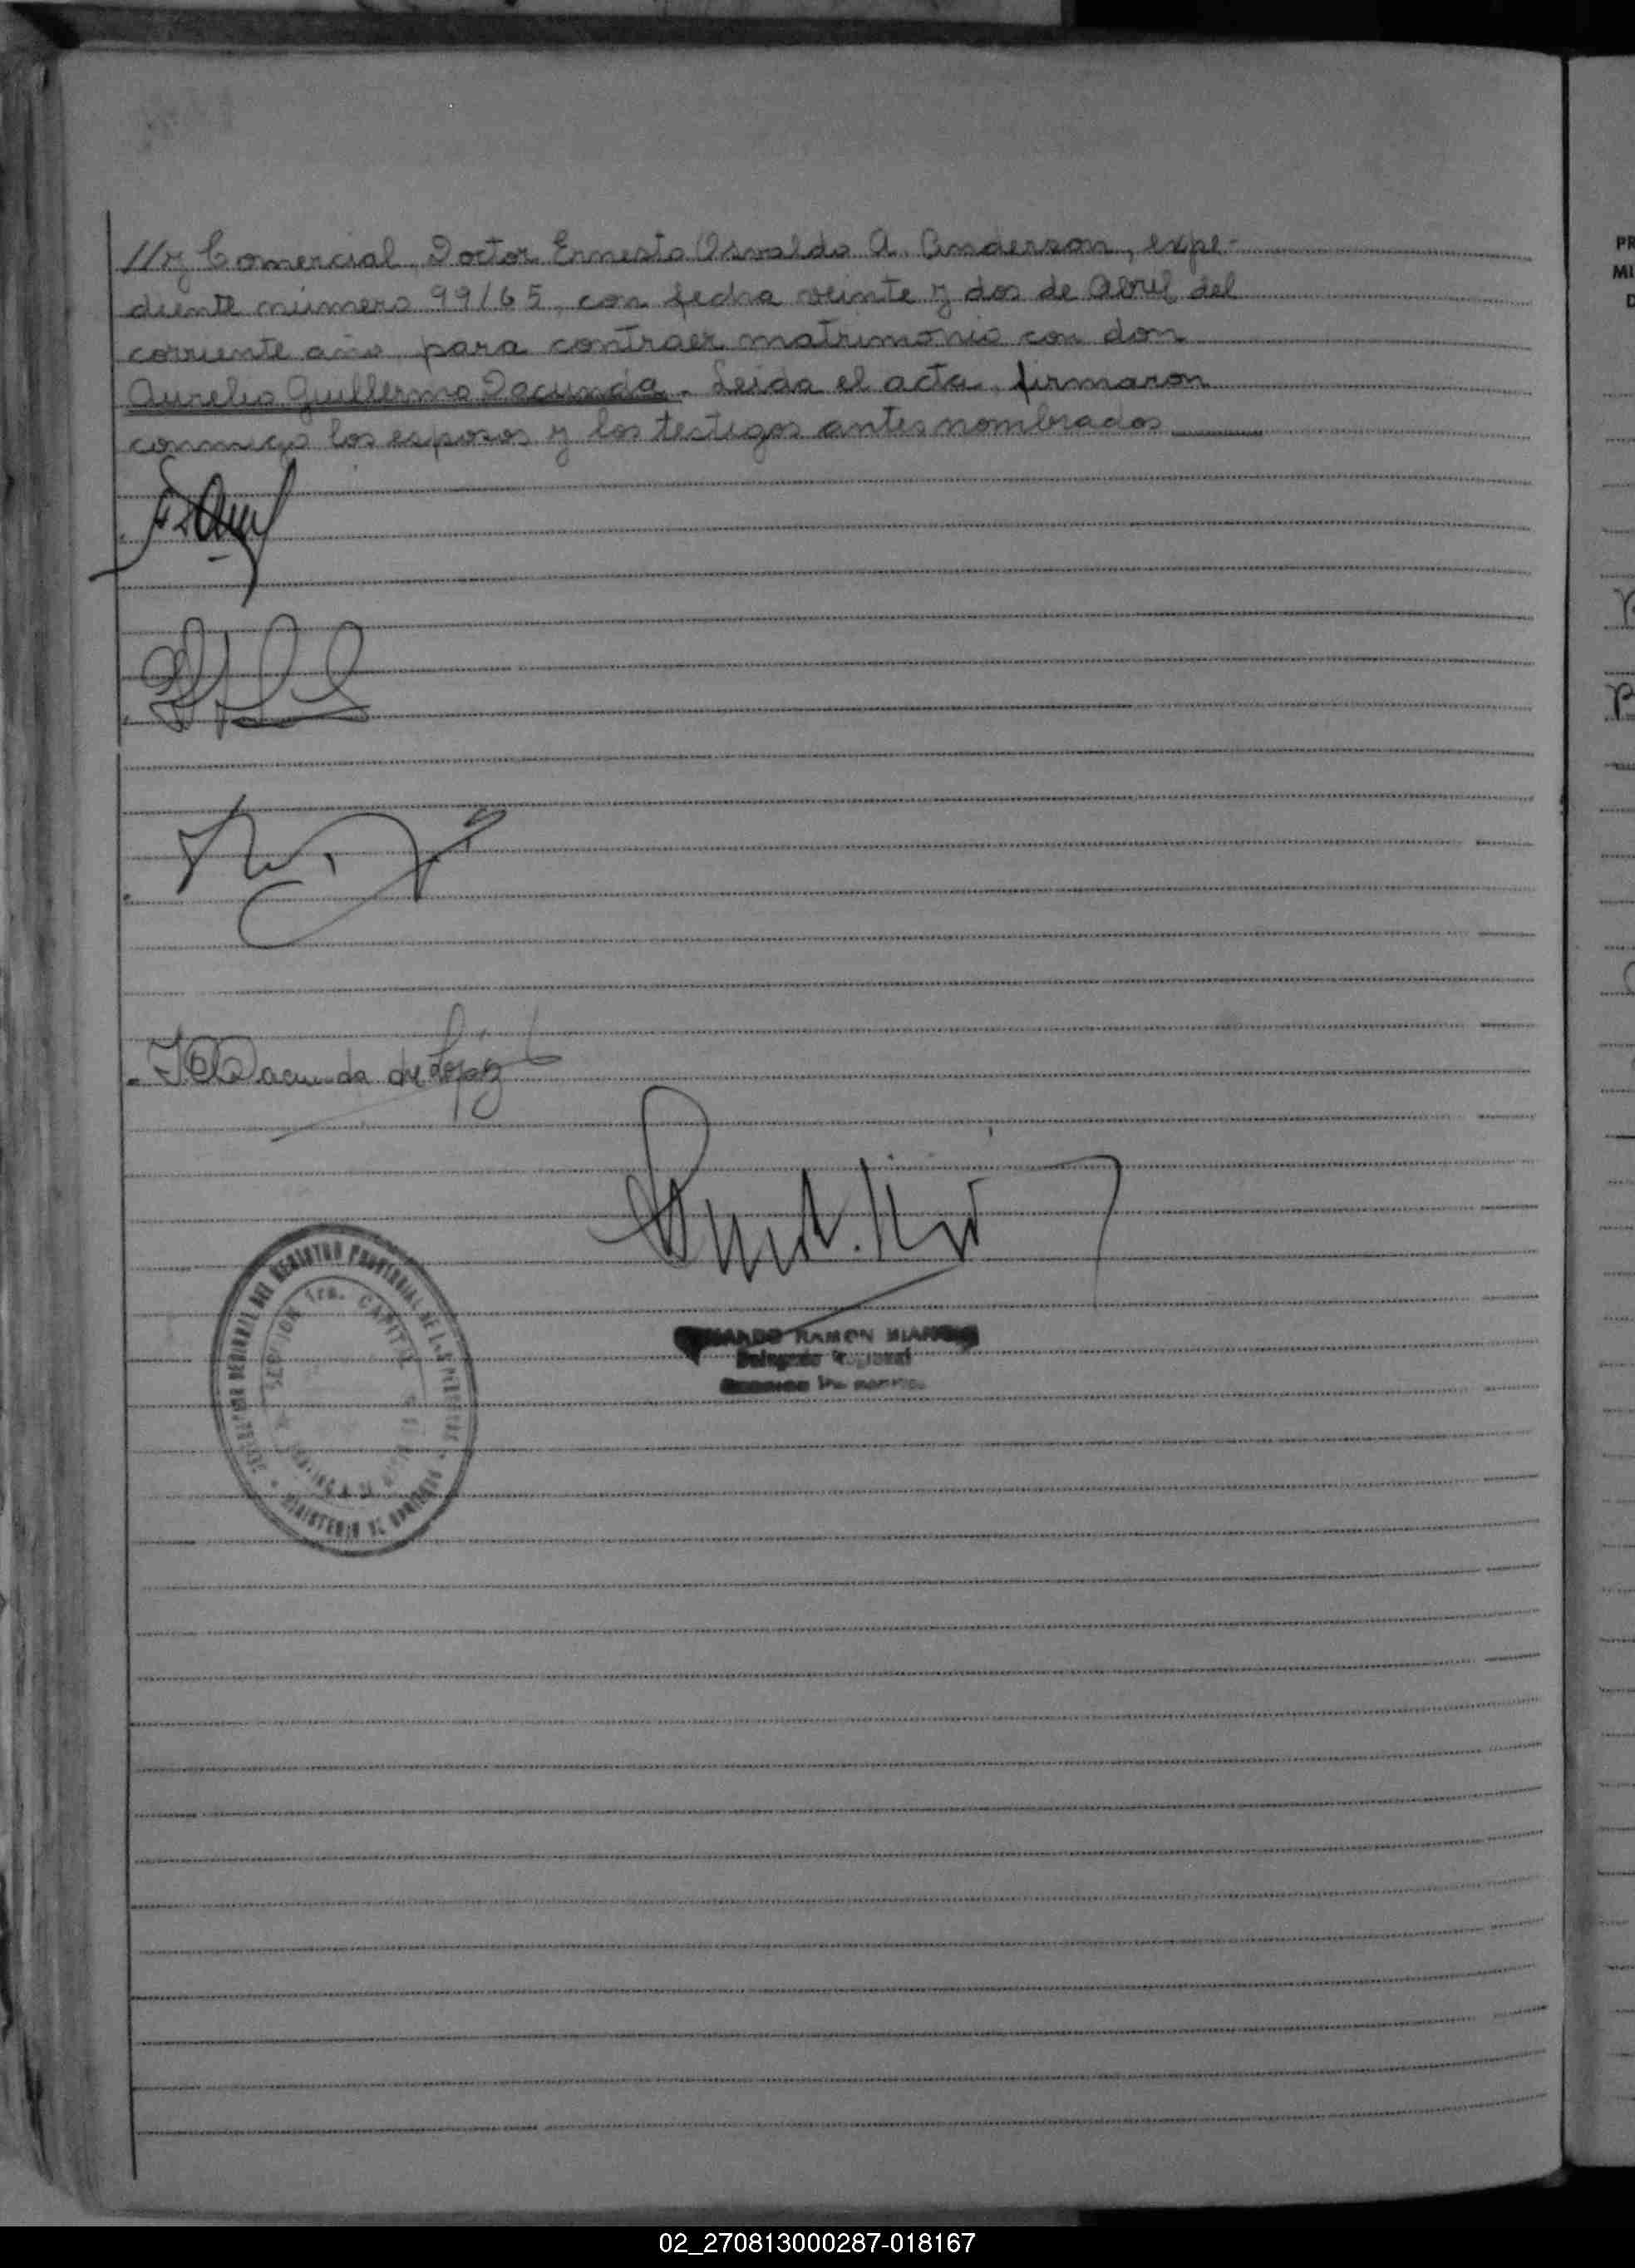 //y Comercial, Doctor Ernesto Osvaldo A. Anderson, expe-
diente número 99/65, con fecha veinte y dos de Abril del
corriente año para contraer matrimonio con don
Aurelio Guillermo Dacunda. Leida el acta, firmaron
conmigo los esposos y los testigos antes nombrados
Dacunda de López
RAMON
Delegado Regional
REGISTRO PROVINCIAL DE LAS PERSONAS
SECCION 1ra. CAPITAL
MINISTERIO DE GOBIERNO
PR
MI
D
02_270813000287-018167